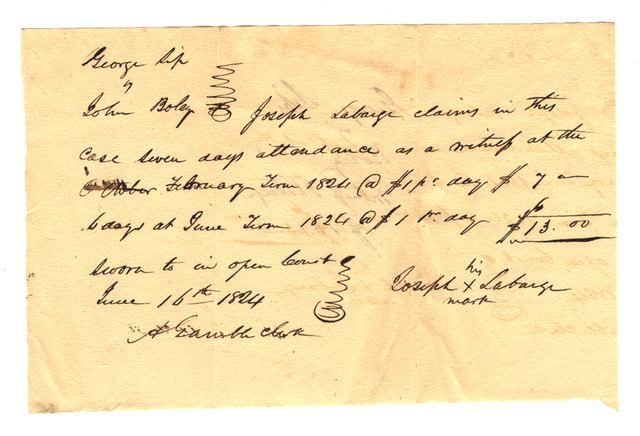 George Sip
v
John Boley Joseph Labarge claims in this
case seven days attendance as a witness at the
February Term 1824 @ $1 pr day $ 7 =
6 days at June Term 1824 @ $1 pr day $13.00
sworn to in open Court
June 16th 1824
A Gamble Clerk
his
Joseph X Labarge
mark